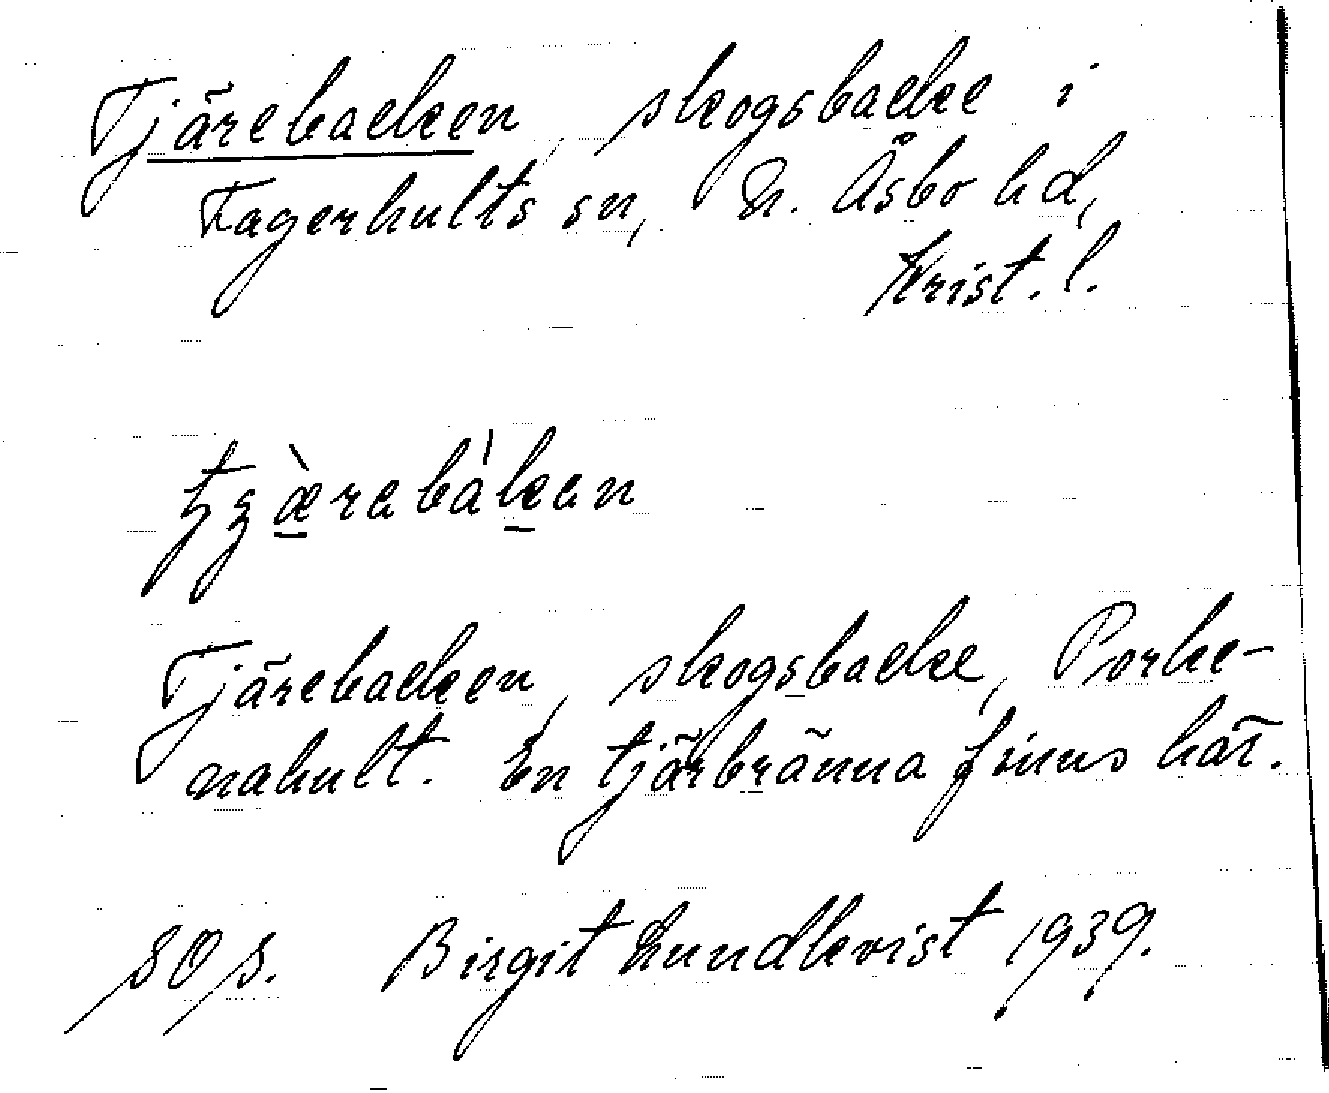 Tjärebacken, skogsbacke i
Fagerhults sn, N. Åsbo hd,
Krist. l.
Tjärebacken, skogsbacke, Porke-
nahult. En tjärbränna finns här.
SOS. Birgit Lundkvist 1939.